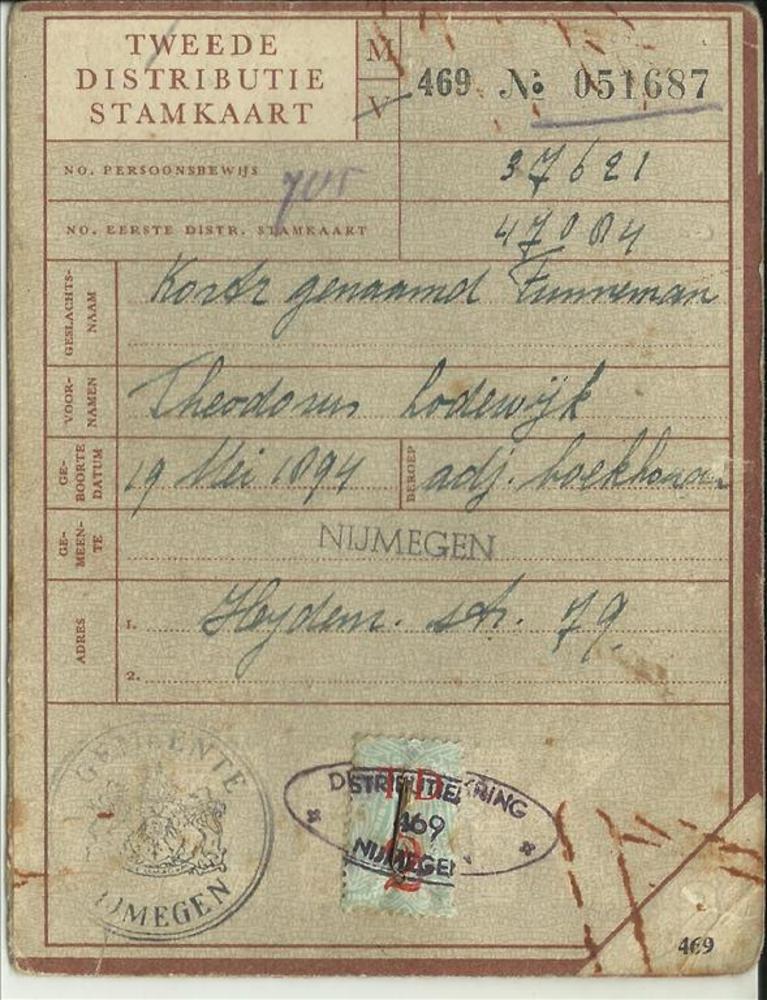 TWEEDE
DISTRIBUTIE
STAMKAART
M
V
469 No 051687
NO. PERSOONSBEWIJS 37621
NO. EERSTE DISTR. STAMKAART 47084
GESLACHTS-
NAAM
genaamd Funneman
VOOR-
NAMEN
Theodorus Lodewijk
GE-
BOORTE
DATUM
19 Mei 1894
BEROEP
adj. boekhouder
GE-
MEEN-
TE
NIJMEGEN
ADRES
1. Heydenr. str. 79.
2.
GEMEENTE
NIJMEGEN
TD
2
DISTRIBUTIEKRING
469
NIJMEGEN
469